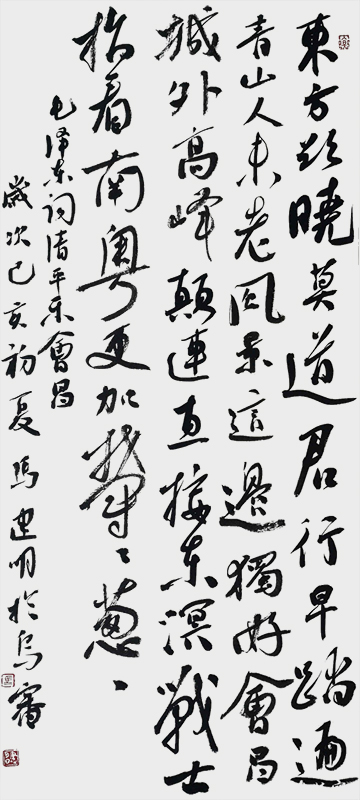 東方欲曉莫道君行早踏遍
青山人未老風景這邊獨好會昌
城外高峰顛連直接东溟戰士
指看南粤更加鬱々葱々
毛泽东词清平乐會昌
歲次己亥初夏馮建明於烏審